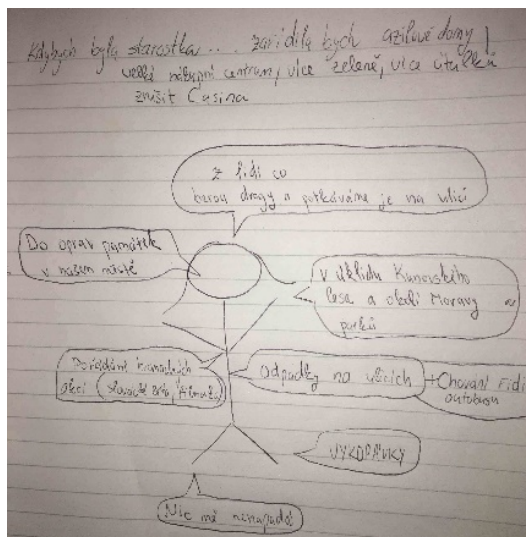 Kdybych byla starostka... zařídila bych azilové domy,
velké nákupní centrum, více zeleně, více útulků
zrušit Casina
z lidí co
berou drogy a potkáváme je na ulici
Do oprav památek
v našem městě
V úklidu Kunovského
lesa a okolí Moravy
parků
Pořádání
akcí (slovácké léto,
Odpadky na ulicích
+Chování řidi
autobusu
VYKOPÁVKY
Nic mě nenapadá